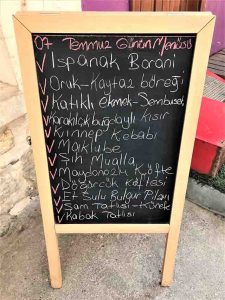 07 Temmuz Günün Menüsü
Ispanak Borani
Oruk-Kaytaz böreği
Katıklı ekmek-Sembusek
Karakılçık buğdaylı Kısır
Kınnep Kebabı
Maklube
Şıh Mualla
Maydonozlu Köfte
Döğürcük Köftesi
Et Sulu Bulgur Pilavı
Şam Tatlısı-Künefe
Kabak Tatlısı